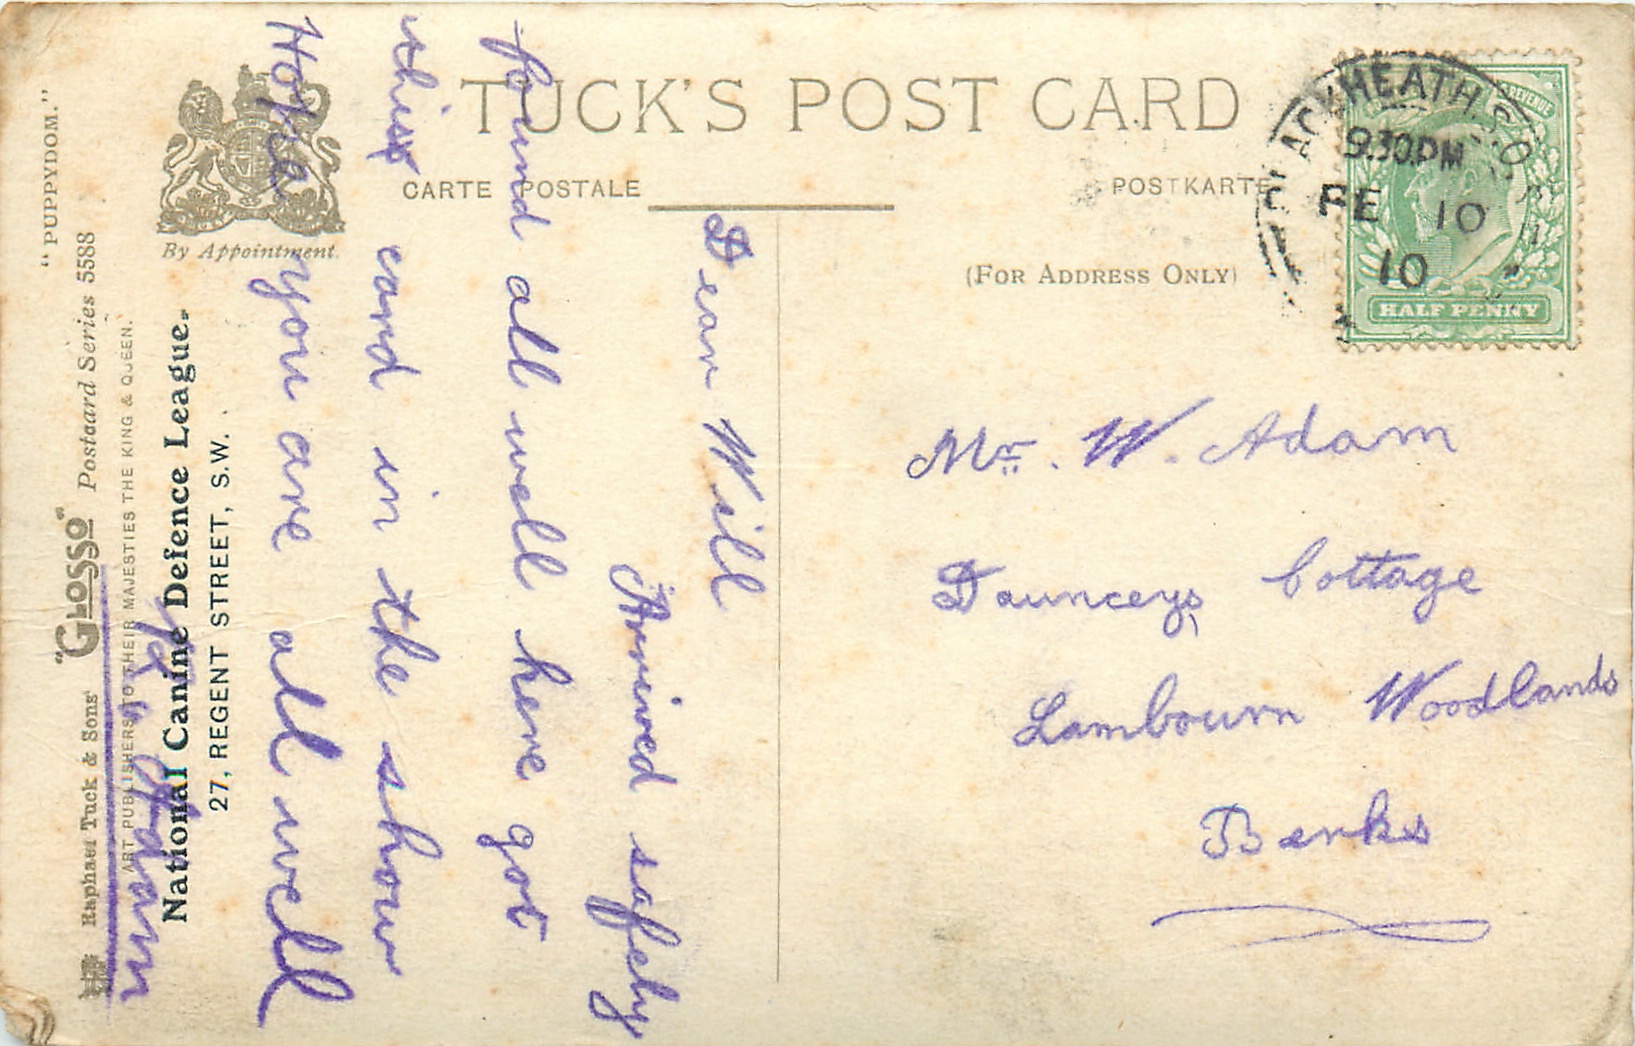 TUCK'S POST CARD
CARTE POSTALE
POSTKARTE
(FOR ADDRESS ONLY)
By Appointment.
BLACKHEATH. S.O
9.30PM
FE 10
10
REVENUE
HALF PENNY
Mr. W. Adam
Daunceys Cottage
Lambourn Woodlands
Berks
Dear Will
Arrived safely
found all well here got
this card in the show
Hope you are all well
Adam
National Canine Defence League.
27, REGENT STREET, S.W.
Raphael Tuck & Sons' "GLOSSO" Postcard Series 5588
ART PUBLISHERS TO THEIR MAJESTIES THE KING & QUEEN.
"PUPPYDOM."